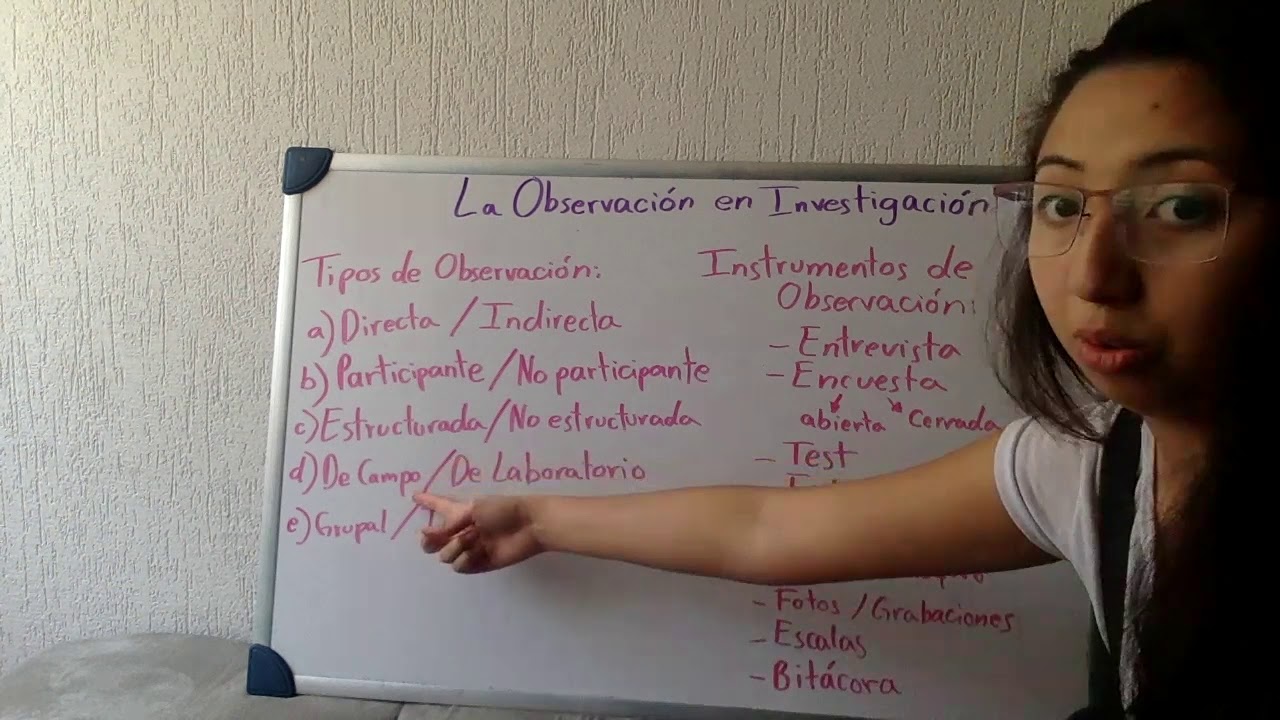 La Observación en Investigación
Tipos de Observación:
a) Directa / Indirecta
b) Participante / No participante
c) Estructurada / No estructurada
d) De Campo / De Laboratorio
e) Grupal /
Instrumentos de
Observación:
- Entrevista
- Encuesta
abierta cerrada
- Test
- Fotos / Grabaciones
- Escalas
- Bitácora